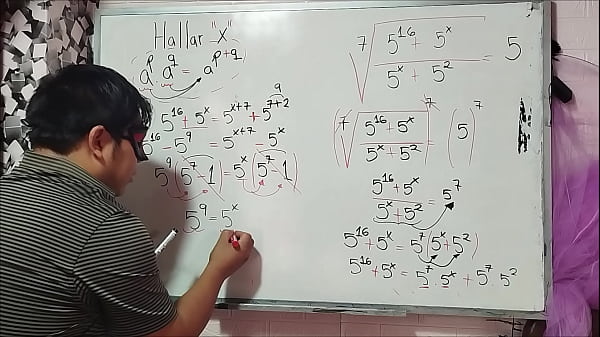 Hallar "X"
a^p · a^q = a^{p+q}
5^{16} + 5^x = 5^{x+7} + 5^{7+2} 9
5^{16} - 5^9 = 5^{x+7} - 5^x
5^9 (5^7 - 1) = 5^x (5^7 - 1)
5^9 = 5^x
\sqrt[7]{\frac{5^{16} + 5^x}{5^x + 5^2}} = 5
(\sqrt[7]{\frac{5^{16} + 5^x}{5^x + 5^2}})^7 = (5)^7
\frac{5^{16} + 5^x}{5^x + 5^2} = 5^7
5^{16} + 5^x = 5^7 (5^x + 5^2)
5^{16} + 5^x = 5^7 · 5^x + 5^7 · 5^2